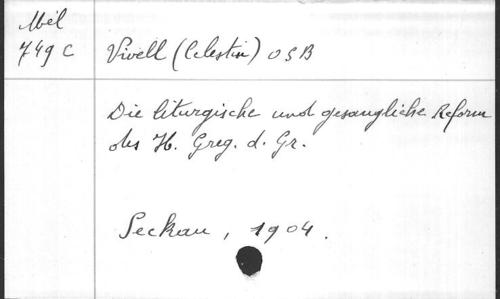 Mél
749 C
Vivell (Celestin) OSB
Die liturgische und gesangliche Reform
des H. Greg. d. Gr.
Seckau, 1904.